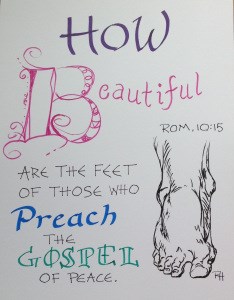 HOW
Beautiful
ROM. 10:15
ARE THE FEET
OF THOSE WHO
Preach
THE
GOSPEL
OF PEACE.
RH